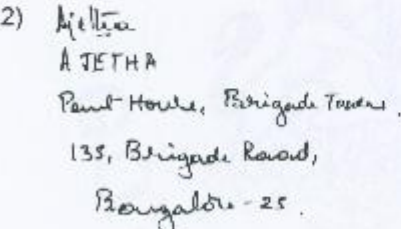 2) Ajetha
A JETHA
Pent House, Brigade Towers,
135, Brigade Road,
Bangalore - 25.